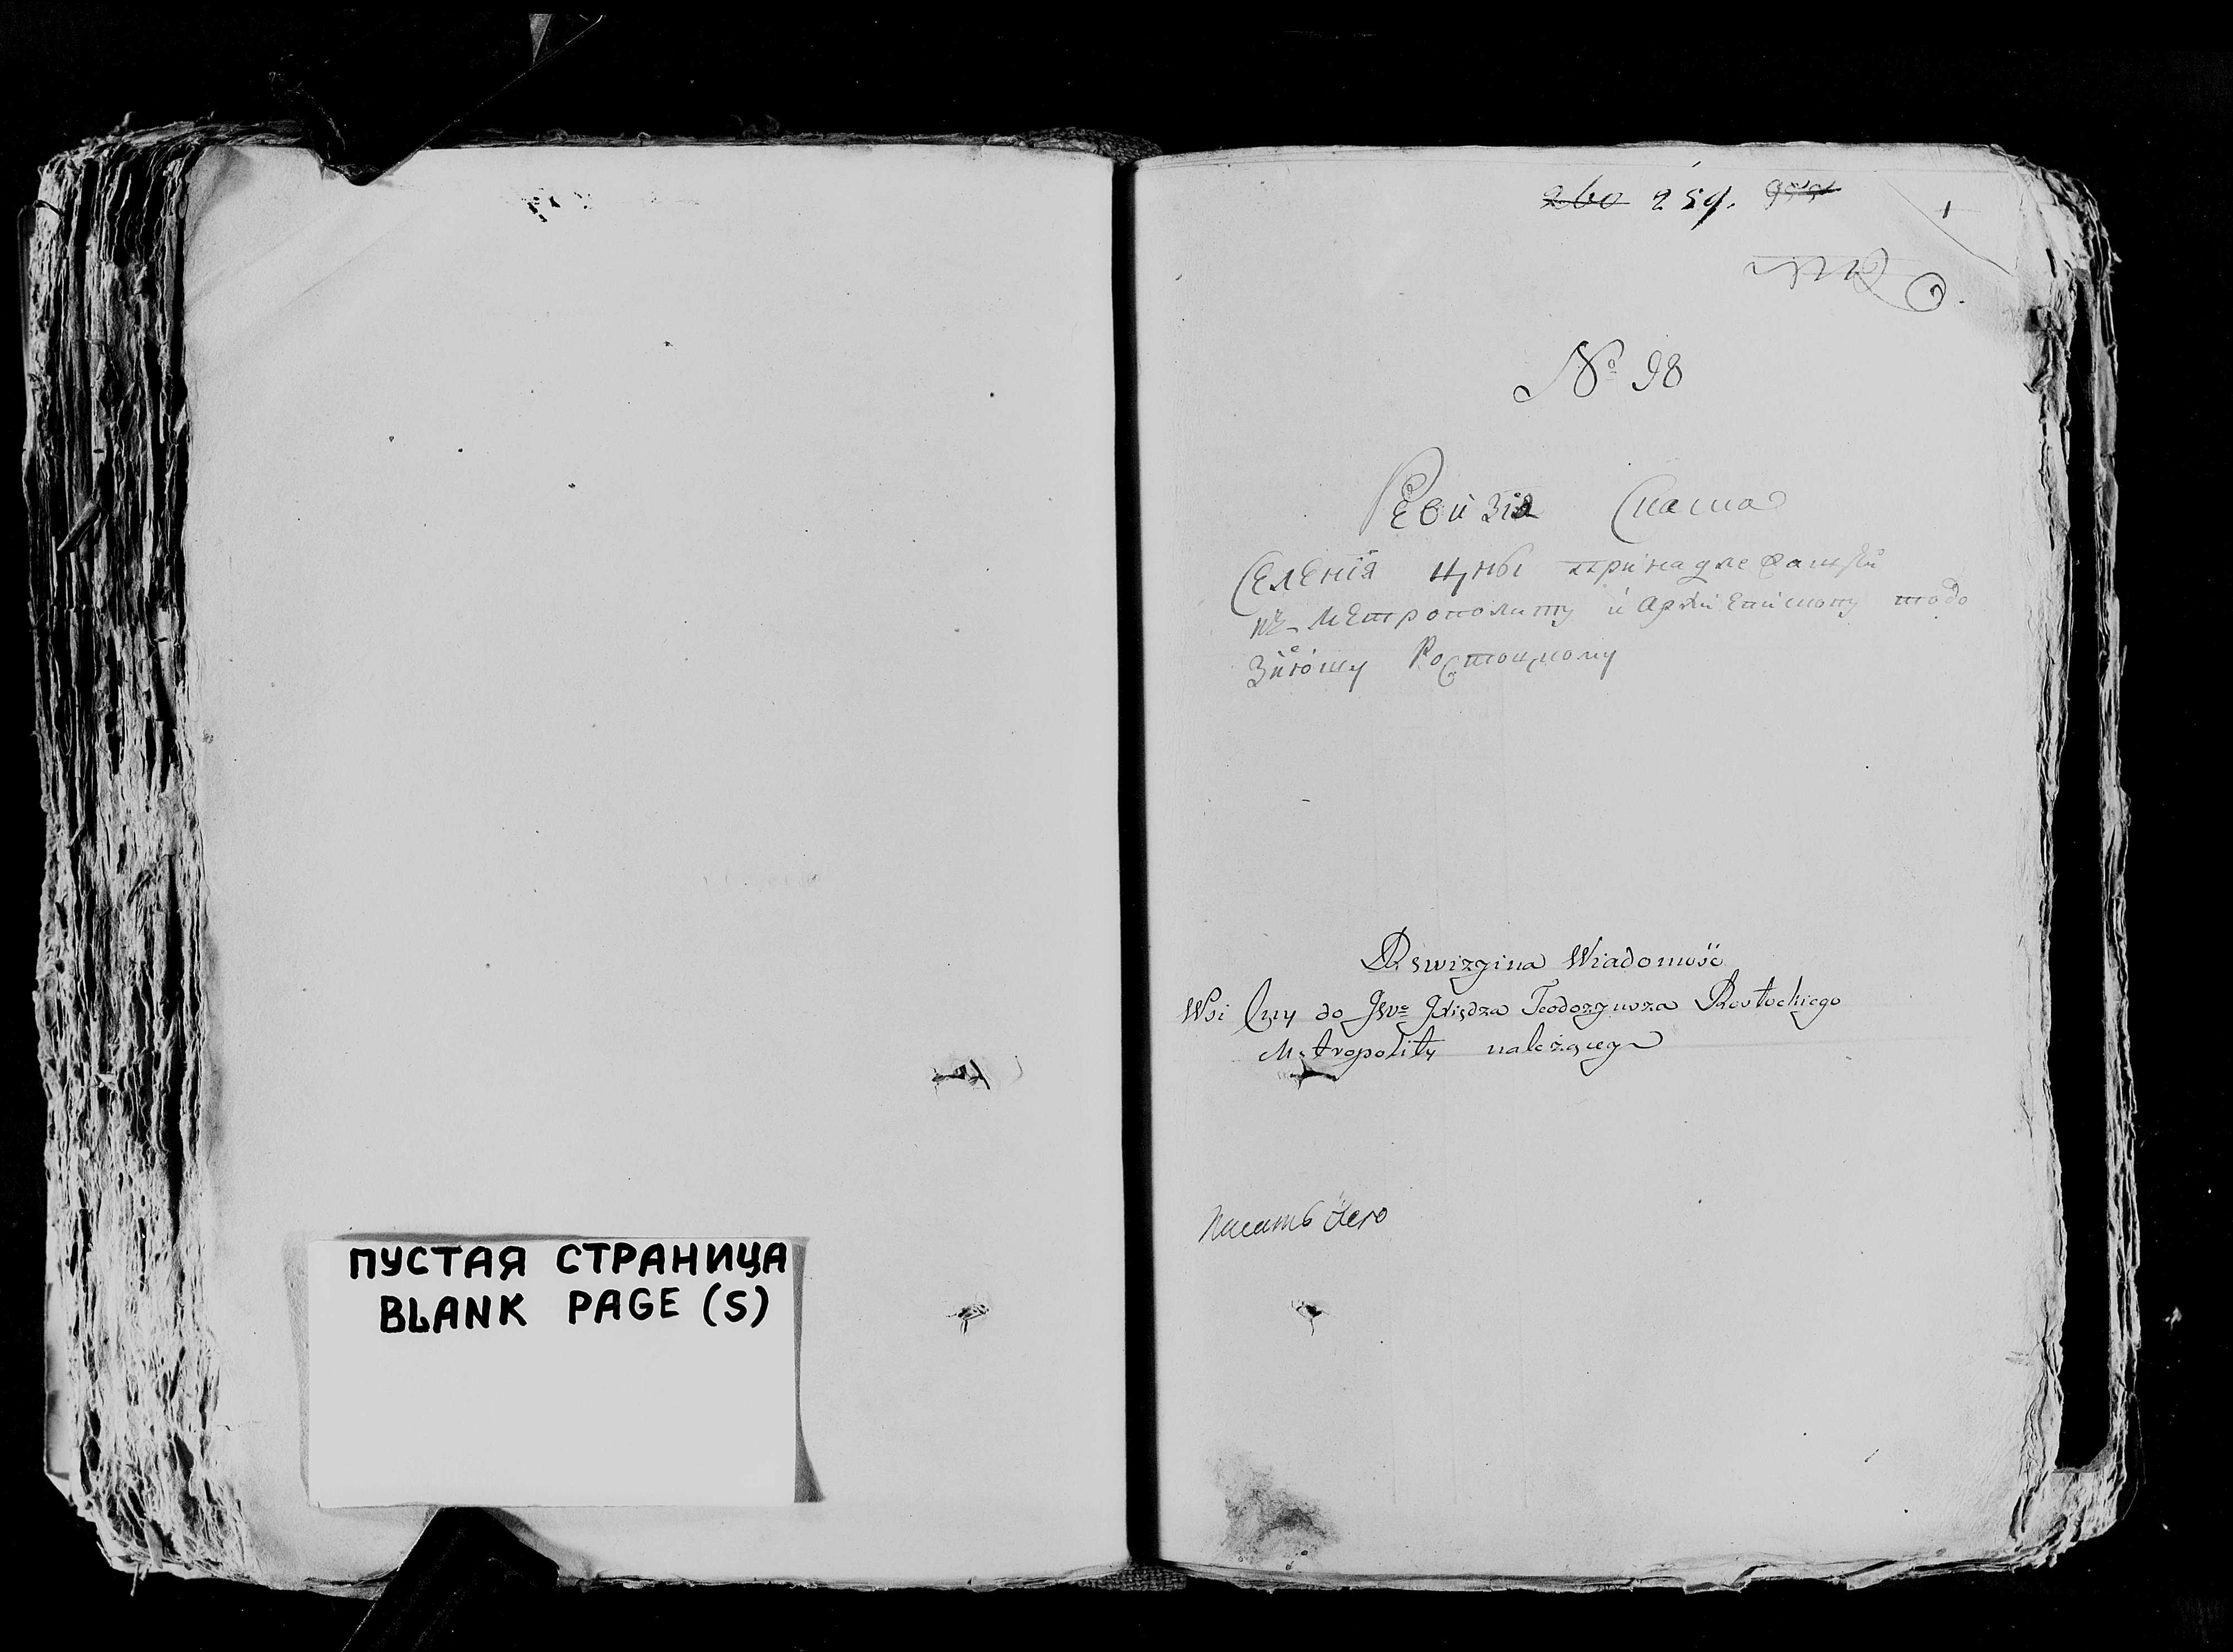 ПУСТАЯ СТРАНИЦА
BLANK PAGE (S)
260 259.
1
№ 98
Ревизiя Скаска
Селенiя Цны принадлежащей
къ Метрополиту и архiепископу тодо
Зiюшу Ростоцкому
Rewizyina Wiadomość
Wsi Cny do JWe Xiędza Teodozyusza Rostockiego
Metropolity należącego
писать